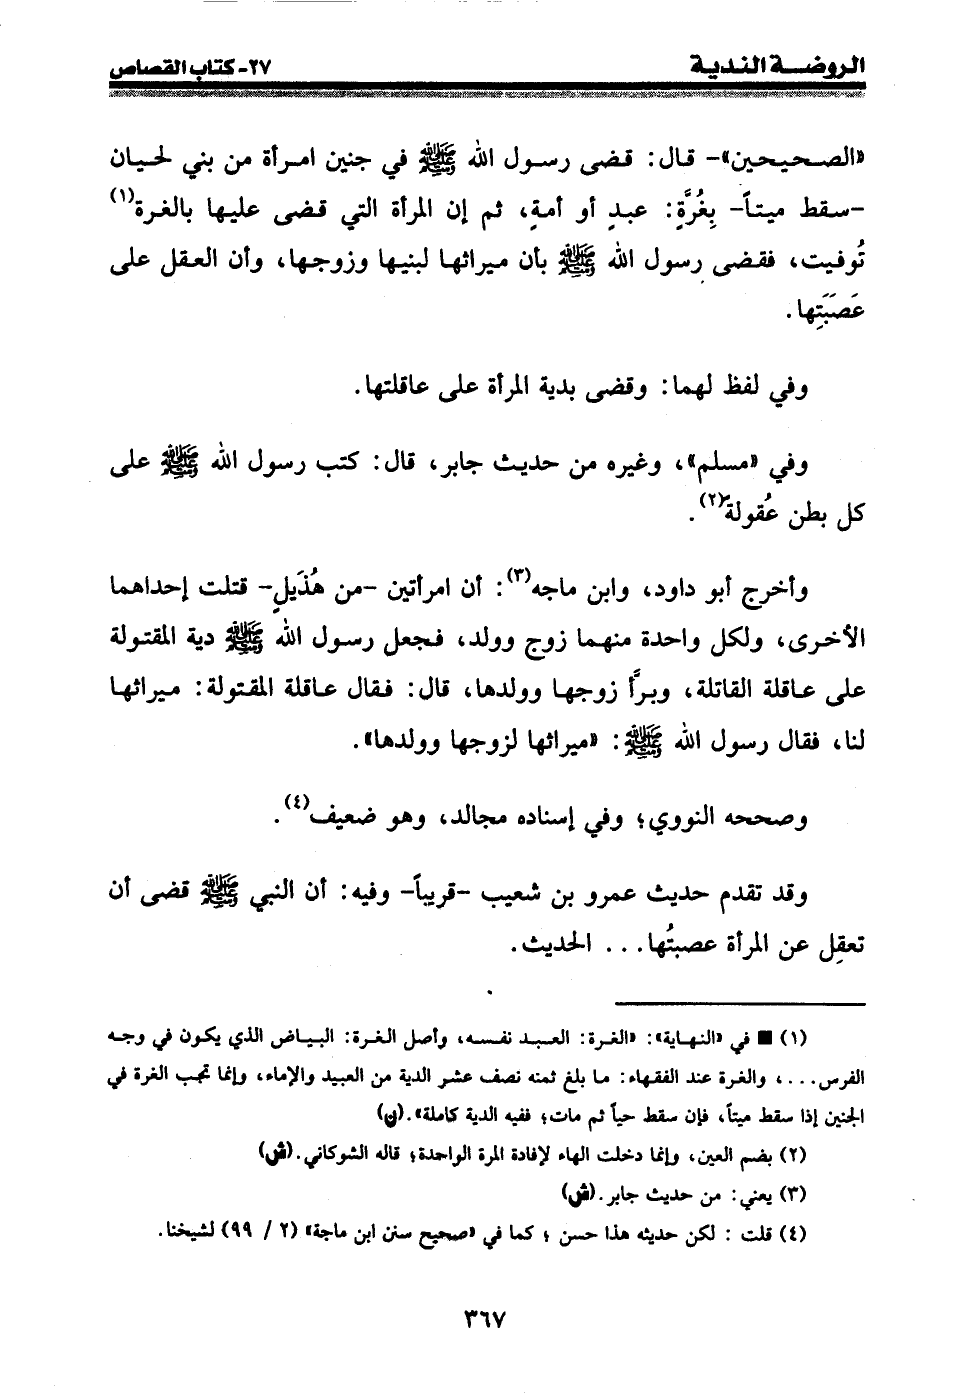 الروضة الندية
٢٧- كتاب القصاص
«الصحيحين»- قال: قضى رسول الله ﷺ في جنين امرأة من بني لحيان
-سقط ميتاً- بِغُرَّةٍ: عبدٍ أو أمةٍ، ثم إن المرأة التي قضى عليها بالغرة(١)
تُوفيت، فقضى رسول الله ﷺ بأن ميراثها لبنيها وزوجها، وأن العقل على
عَصَبَتِها.
وفي لفظ لهما: وقضى بدية المرأة على عاقلتها.
وفي «مسلم»، وغيره من حديث جابر، قال: كتب رسول الله ﷺ على
كل بطن عُقولة(٢).
وأخرج أبو داود، وابن ماجه(٣): أن امرأتين -من هُذَيلٍ- قتلت إحداهما
الأخرى، ولكل واحدة منهما زوج وولد، فجعل رسول الله ﷺ دية المقتولة
على عاقلة القاتلة، وبرَّأ زوجها وولدها، قال: فقال عاقلة المقتولة: ميراثها
لنا، فقال رسول الله ﷺ: «ميراثها لزوجها وولدها».
وصححه النووي؛ وفي إسناده مجالد، وهو ضعيف(٤).
وقد تقدم حديث عمرو بن شعيب -قريباً- وفيه: أن النبي ﷺ قضى أن
تعقِل عن المرأة عصبتُها... الحديث.
(١) ■ في «النهاية»: «الغرة: العبد نفسه، وأصل الغرة: البياض الذي يكون في وجه
الفرس...، والغرة عند الفقهاء: ما بلغ ثمنه نصف عشر الدية من العبيد والإماء، وإنما تجب الغرة في
الجنين إذا سقط ميتاً، فإن سقط حياً ثم مات؛ ففيه الدية كاملة».(ن)
(٢) بضم العين، وإنما دخلت الهاء لإفادة المرة الواحدة؛ قاله الشوكاني.(ش)
(٣) يعني: من حديث جابر.(ش)
(٤) قلت : لكن حديثه هذا حسن ؛ كما في «صحيح سنن ابن ماجة» (٢ / ٩٩) لشيخنا.
٣٦٧